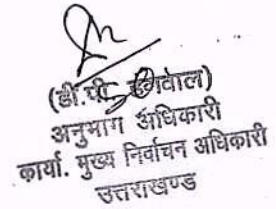 (डी.पी.
अनुभाग अधिकारी
कार्या. मुख्य निर्वाचन अधिकारी
उत्तराखण्ड